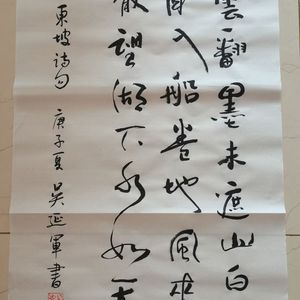 雲翻墨未遮山白
入船卷地風來
散望湖下水如天
東坡诗句 庚子夏 吴延軍書